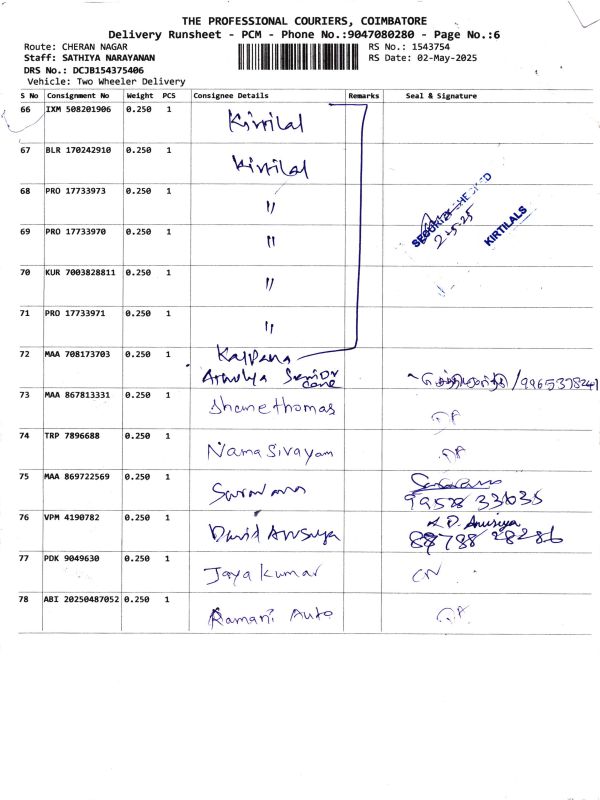 THE PROFESSIONAL COURIERS, COIMBATORE
Delivery Runsheet - PCM - Phone No.:9047080280 - Page No.:6
Route: CHERAN NAGAR
RS No.: 1543754
Staff: SATHIYA NARAYANAN
RS Date: 02-May-2025
DRS No.: DCJB154375406
Vehicle: Two Wheeler Delivery
S No Consignment No Weight PCS Consignee Details Remarks Seal & Signature
66 IXM 508201906 0.250 1 Kirtilal
67 BLR 170242910 0.250 1 Kirtilal
68 PRO 17733973 0.250 1 "
SECURITY CHECKED
2-5-25
KIRTILALS
69 PRO 17733970 0.250 1 "
70 KUR 7003828811 0.250 1 "
71 PRO 17733971 0.250 1 "
72 MAA 708173703 0.250 1 Kalpana
Athulya Senior care /9965378241
73 MAA 867813331 0.250 1 Shanethomas
74 TRP 7896688 0.250 1 Namasivayam
75 MAA 869722569 0.250 1 Saravana
99528 33035
76 VPM 4190782 0.250 1 David Anusuya
D. Anusiya
88788 28286
77 PDK 9049630 0.250 1 Jayakumar
78 ABI 20250487052 0.250 1 Ramani Auto